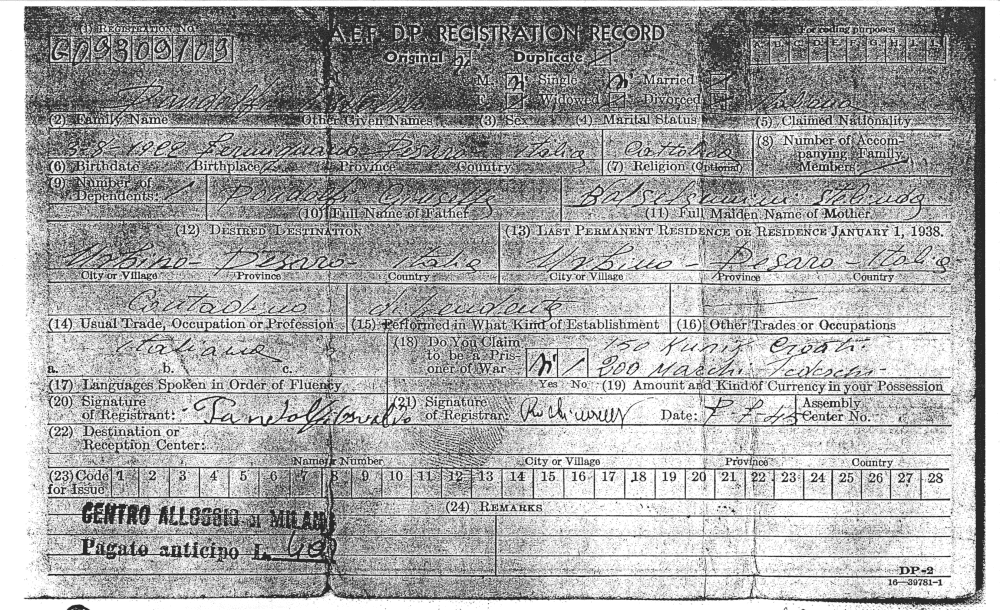 (1) REGISTRATION NO.
A.E.F. D.P. REGISTRATION RECORD
For coding purposes
G09309703
Original Duplicate
A B C D E F G H I J
M. Single Married
F. Widowed Divorced
Italiana
(2) Family Name Other Given Names (3) Sex (4) Marital Status (5) Claimed Nationality
1922 Pesaro Italia Cattolica
(8) Number of Accompanying Family Members
(6) Birthdate Birthplace Province Country (7) Religion (Optional)
(9) Number of Dependents: 1
Pandolfi
(10) Full Name of Father (11) Full Maiden Name of Mother
(12) DESIRED DESTINATION (13) LAST PERMANENT RESIDENCE OR RESIDENCE JANUARY 1, 1938.
Urbino - Pesaro - Italia Urbino - Pesaro - Italia
City or Village Province Country City or Village Province Country
Contadino dipendente
(14) Usual Trade, Occupation or Profession (15) Performed in What Kind of Establishment (16) Other Trades or Occupations
Italiana
(18) Do You Claim to be a Prisoner of War
150 Kune Croati
200 Marchi Tedeschi
a. b. c.
Yes No
(17) Languages Spoken in Order of Fluency (19) Amount and Kind of Currency in your Possession
(20) Signature of Registrant: Pandolfi Osvaldo
(21) Signature of Registrar:
Date:
Assembly Center No.
(22) Destination or Reception Center:
Name or Number City or Village Province Country
(23) Code for Issue 1 2 3 4 5 6 7 8 9 10 11 12 13 14 15 16 17 18 19 20 21 22 23 24 25 26 27 28
(24) REMARKS
CENTRO ALLOGGIO DI MILANO
Pagato anticipo L. 400
DP-2
16—39781-1